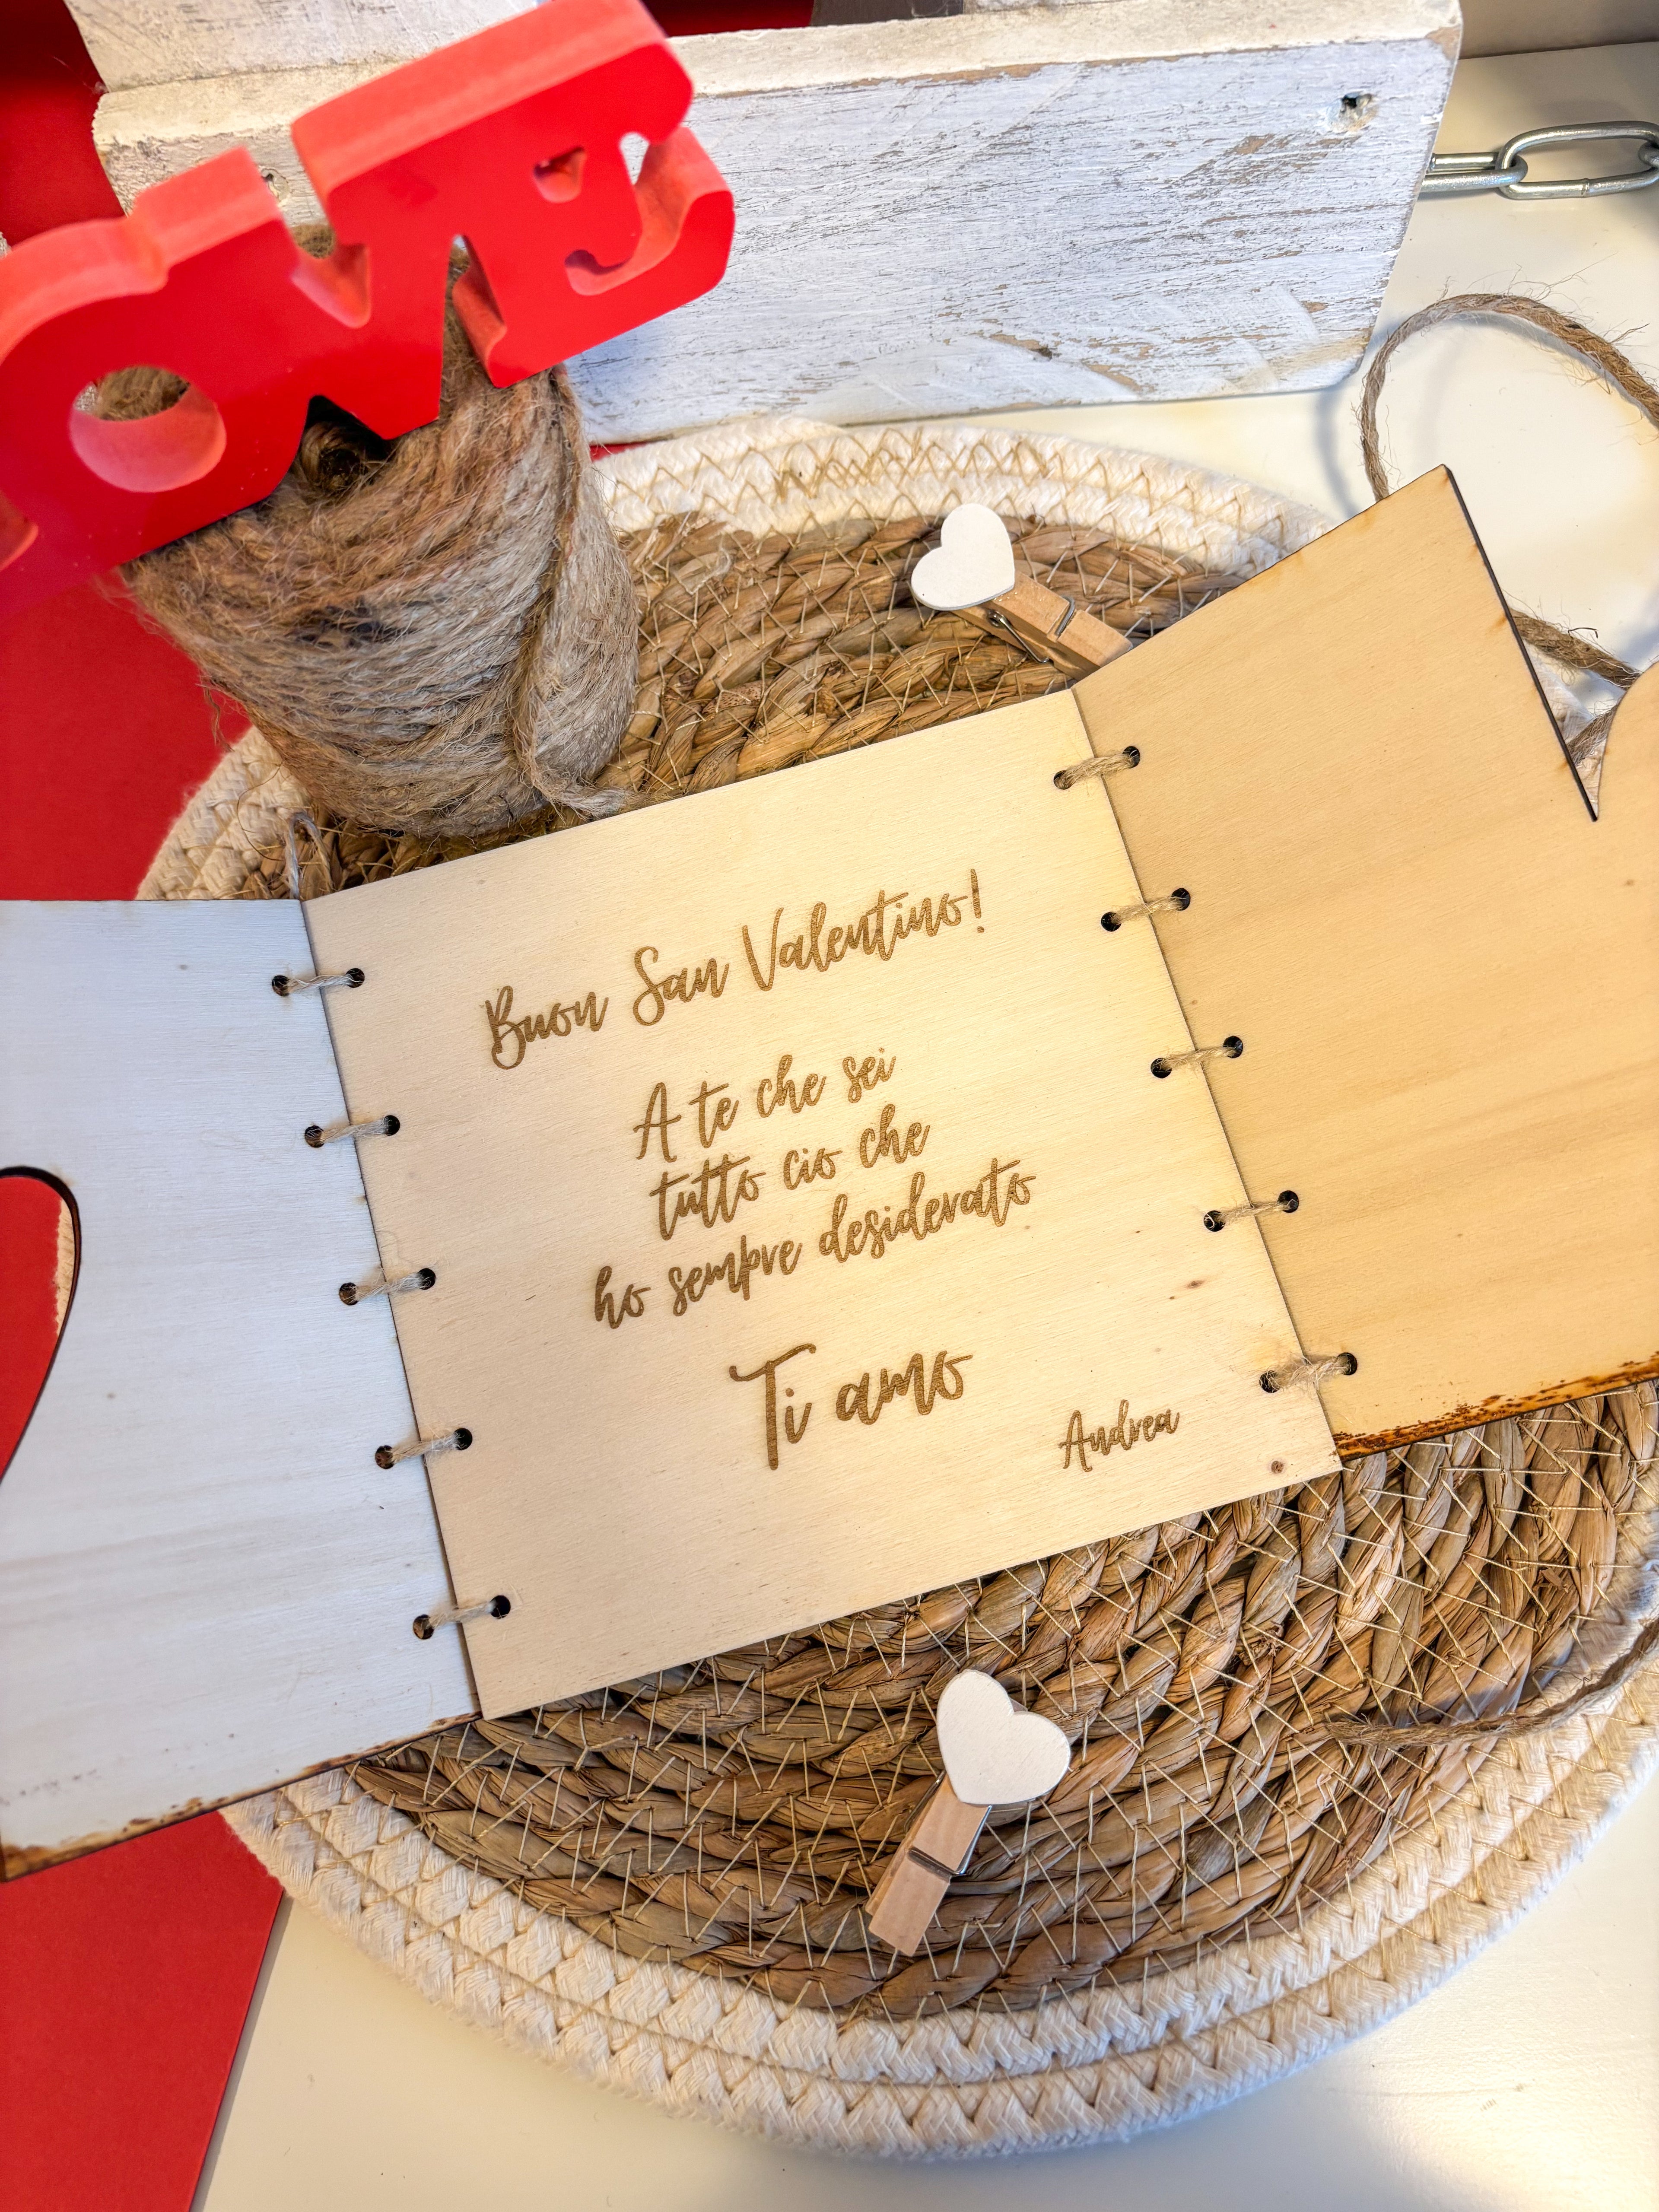 OVE
Buon San Valentino!
A te che sei
tutto cio che
ho sempre desiderato
Ti amo
Andrea